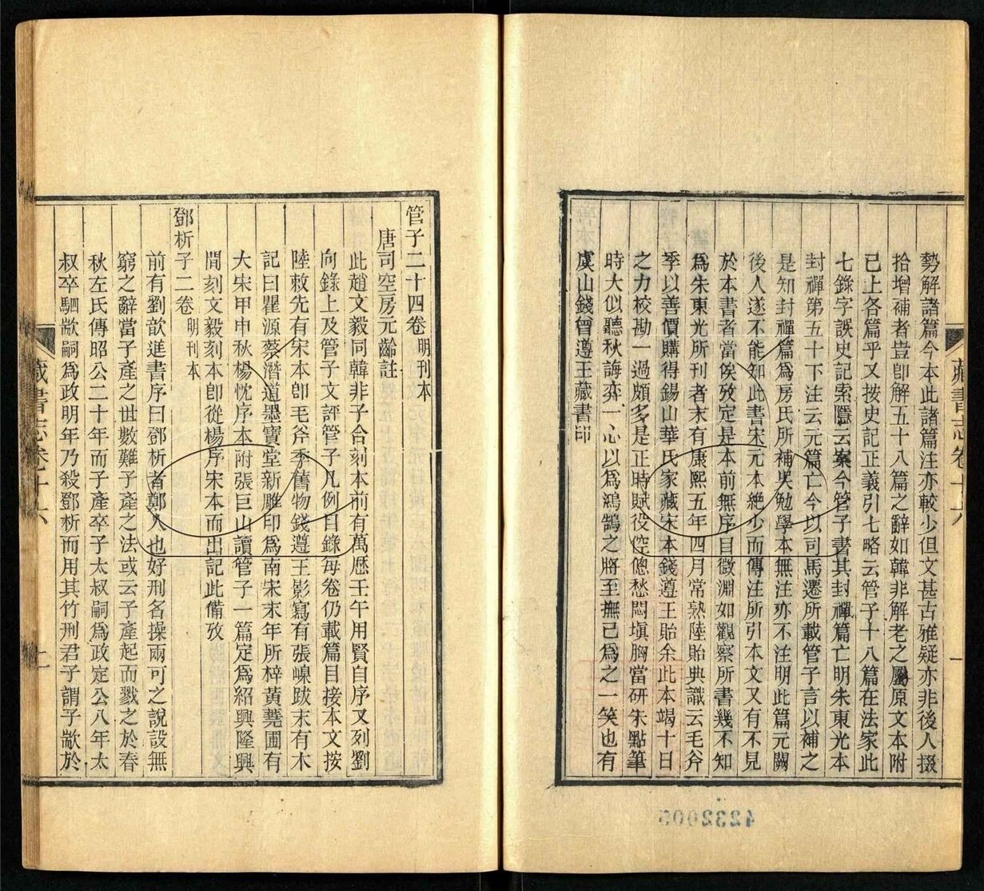 藏書志卷十六
一
勢解諸篇今本此諸篇注亦較少但文甚古雅疑亦非後人掇
拾增補者豈卽解五十八篇之辭如韓非解老之屬原文本附
己上各篇乎又按史記正義引七略云管子十八篇在法家此
七錄字誤史記索隱云案今管子書其封禪篇亡明朱東光本
封禪第五十下注云元篇亡今以司馬遷所載管子言以補之
是知封禪篇爲房氏所補吳勉學本無注亦不注明此篇元闕
後人遂不能知此書宋元本絶少而傳注所引本文又有不見
於本書者當俟攷定是本前無序目徵淵如觀察所書幾不知
爲朱東光所刊者末有康熙五年四月常熟陸貽典識云毛斧
季以善價購得錫山華氏家藏宋本錢遵王貽余此本竭十日
之力校勘一過頗多是正時賦役倥傯愁悶塡胸當研朱點筆
時大似聽秋誨弈一心以爲鴻鵠之將至撫己爲之一笑也有
虞山錢曾遵王藏書印
管子二十四卷明刊本
唐司空房元齡註
此趙文毅同韓非子合刻本前有萬厯壬午用賢自序又列劉
向錄上及管子文評管子凡例目錄每卷仍載篇目接本文按
陸敕先有宋本卽毛斧季舊物錢遵王影寫有張嵲跋末有木
記曰瞿源蔡潛道墨寶堂新雕印爲南宋末年所梓黄蕘圃有
大宋甲申秋楊忱序本附張巨山讀管子一篇定爲紹興隆興
間刻文毅刻本卽從楊序宋本而出記此備攷
鄧析子二卷明刊本
前有劉歆進書序曰鄧析者鄭人也好刑名操兩可之說設無
窮之辭當子產之世數難子產之法或云子產起而戮之於春
秋左氏傳昭公二十年而子產卒子太叔嗣爲政定公八年太
叔卒駟歂嗣爲政明年乃殺鄧析而用其竹刑君子謂子歂於
藏書志卷十六
二
4232005